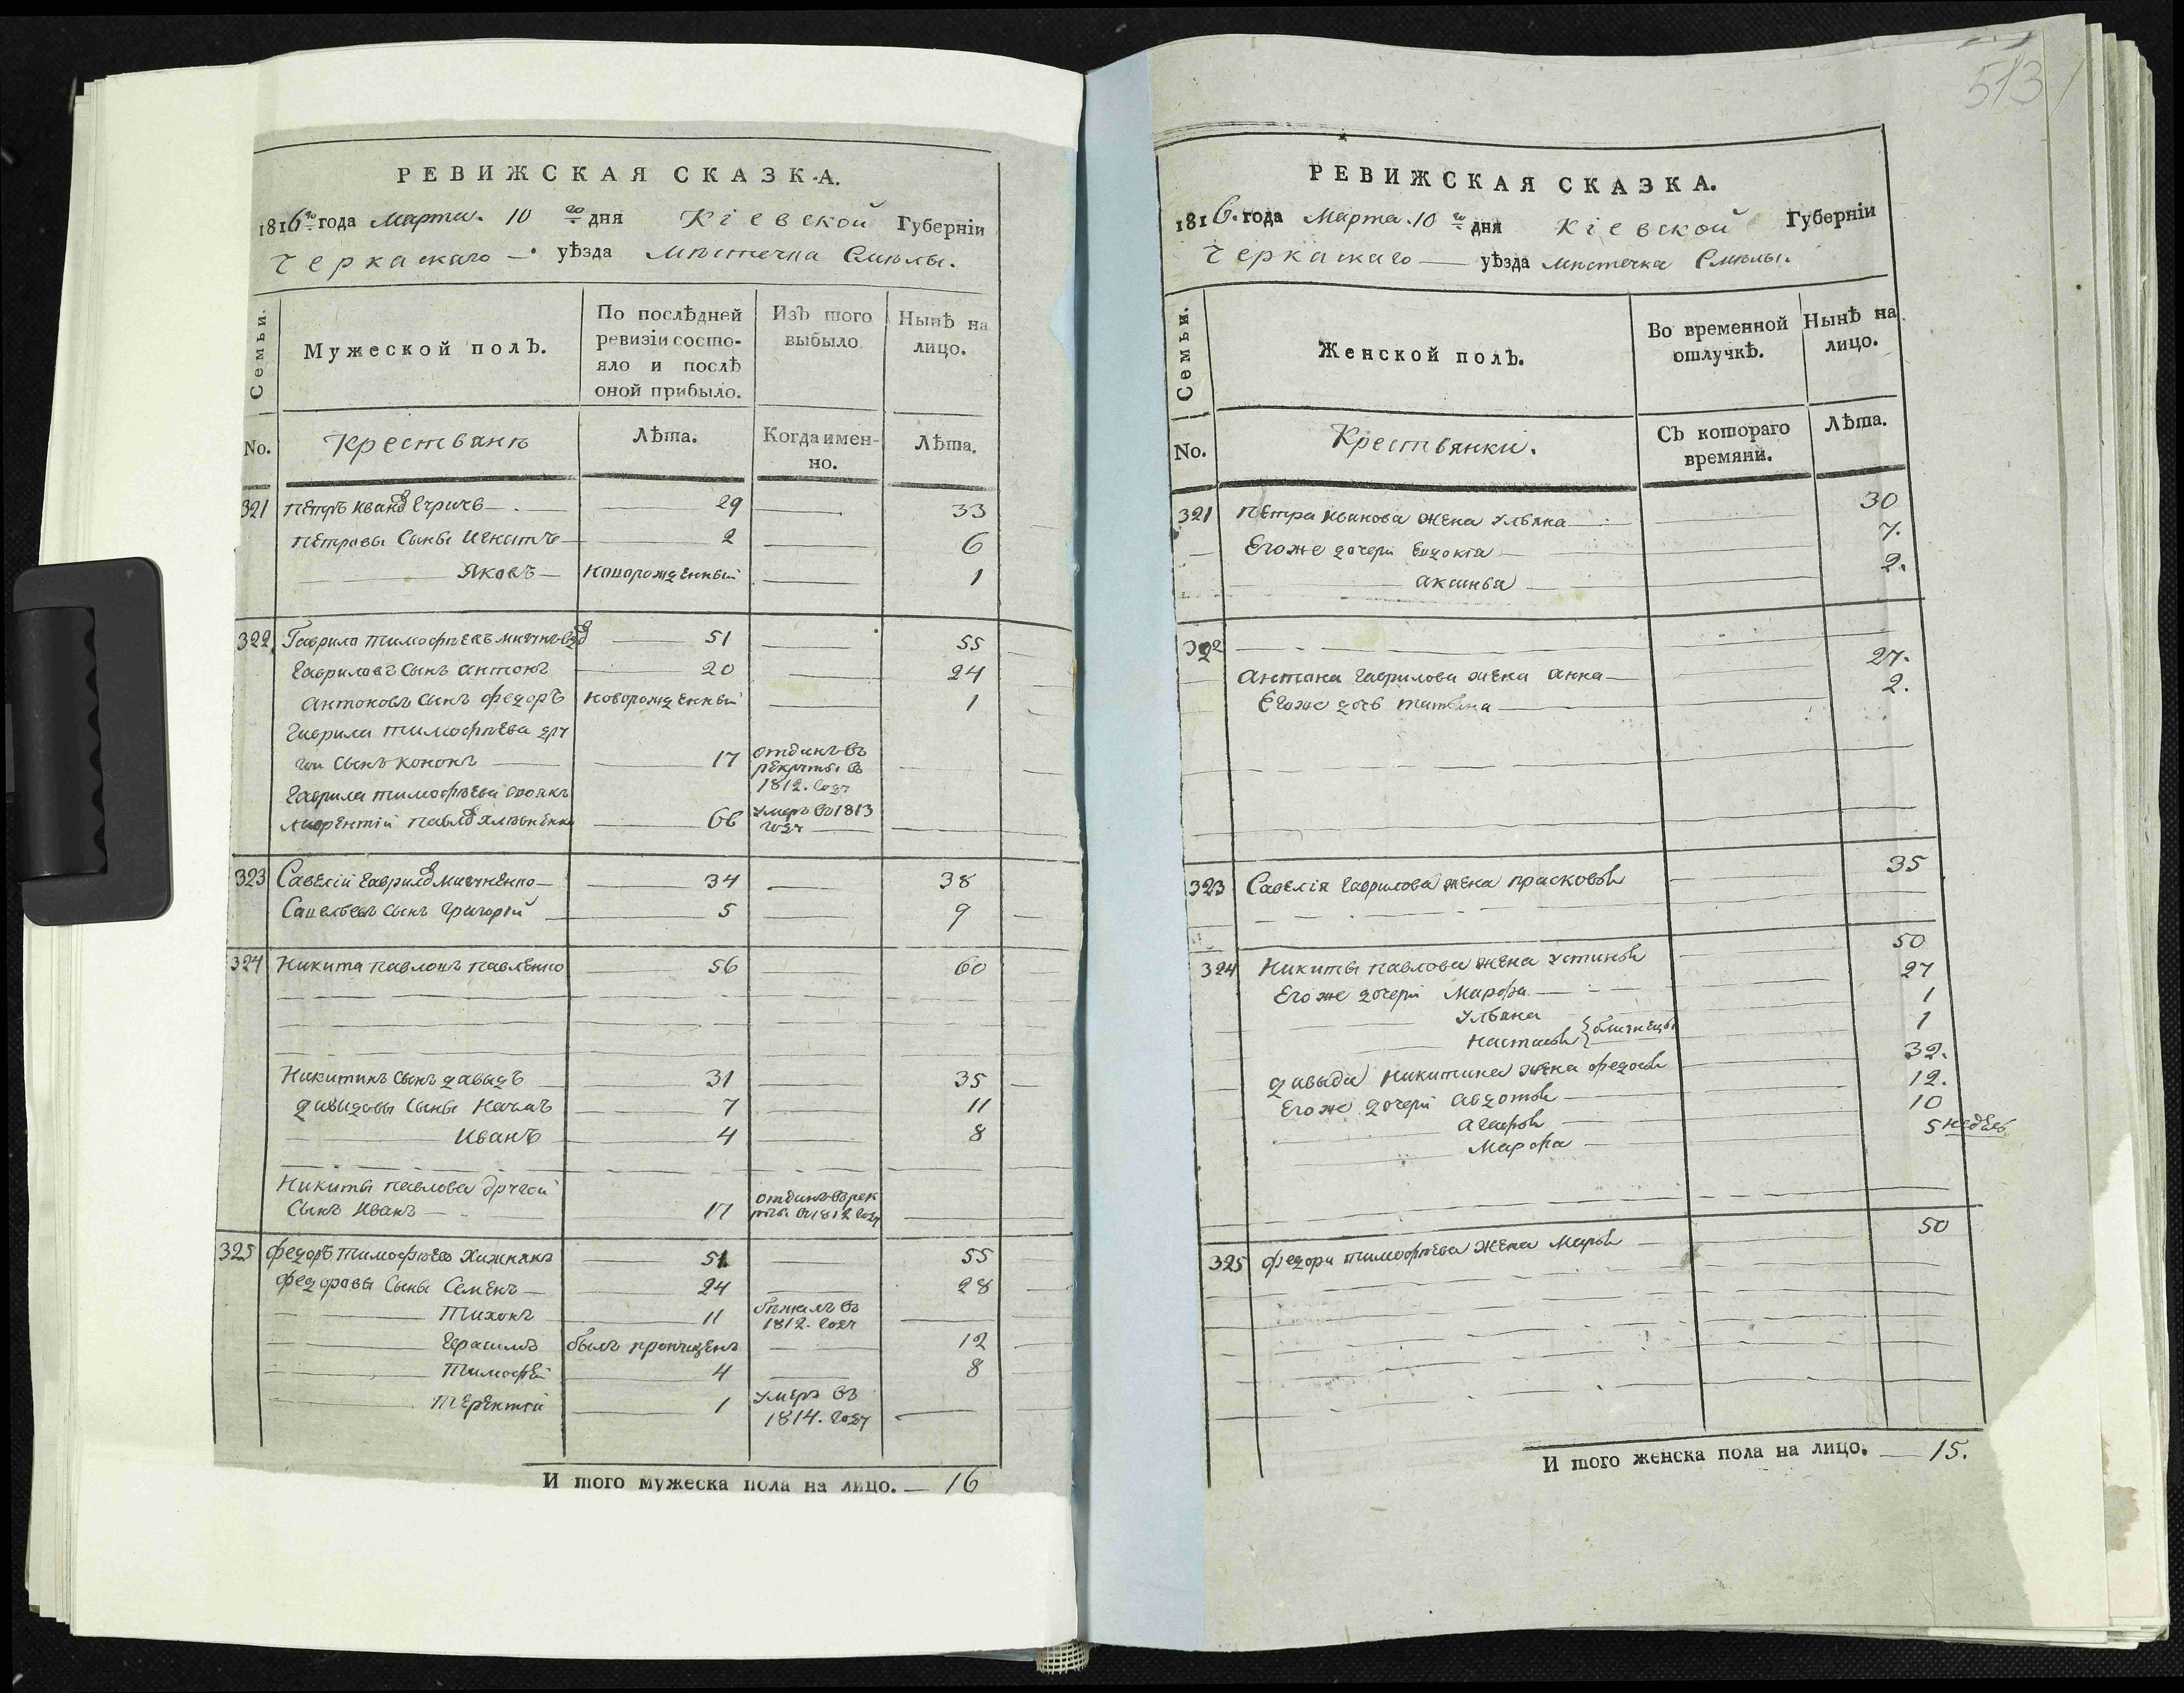 РЕВИЖСКАЯ СКАЗКА.
1816го года Марта. 10 го дня Кіевской Губерніи
Черкаскаго уѣзда Мѣстечка Смѣлы.
Семьи.
Мужеской полъ.
По послѣдней ревизіи состо-
яло и послѣ
оной прибыло.
Изъ того
выбыло
Нынѣ на
лицо.
No.
Крестьянѣ
Лѣта.
Когда имен-
но.
Лѣта.
321 Петръ Иванов 29 33
Петровы Сыны Игнатъ 2 6
Яковъ новорожденный 1
322 Гаврила Тимофѣевъ 51 55
Гавриловъ сынъ Антонъ 20 24
Антоновъ сынъ Федоръ новорожденный 1
Гаврила Тимофѣева дру
гои сынъ Кононъ 17 отданъ въ
рекруты въ
1812. году
Гаврила Тимофѣева своякъ
Лаврентій Павлов 66 умеръ въ 1813
году
323 Савелій Гаврилов 34 38
Савельевъ сынъ Григорій 5 9
324 Никита Павловъ Павленко 56 60
Никитинъ сынъ Давыдъ 31 35
Давыдовы сыны 7 11
Иванъ 4 8
Никиты Павлова другой
Сынъ Иванъ 17 отданъ в рек
руты въ 1812 году
325 Федоръ Тимофѣевъ Хижнякъ 51 55
Федоровы Сыны Семенъ 24 28
Тихонъ 11 бѣжалъ въ
1812. году
Герасимъ былъ пропущенъ 12
Тимофей 4 8
Терентій 1 умеръ въ
1814. году
И того мужеска пола на лицо. 16
513
РЕВИЖСКАЯ СКАЗКА.
1816. года Марта. 10 го дня Кіевской Губерніи
Черкаскаго уѣзда Мѣстечка Смѣлы.
Семьи.
Женской полъ.
Во временной
отлучкѣ.
Нынѣ на
лицо.
No.
Крестьянки.
Съ котораго
времяни.
Лѣта.
321 Петра Иванова жена Ульяна 30
Егоже дочери Евдокія 7.
Аксинья 2.
322
Антона Гаврилова жена Анна 27.
Егоже дочь Татьяна 2.
323 Савелія Гаврилова жена Прасковья 35
324 Никиты Павлова жена Устинья 50
Егоже дочери Марфа 27
Ульяна 1
Настасья близнецы 1
Давыда Никитина жена Федосья 32.
Егоже дочери Авдотья 12.
Агафья 10
Марфа 5 недѣль
325 Федора Тимофѣева жена Марья 50
И того женска пола на лицо. 15.